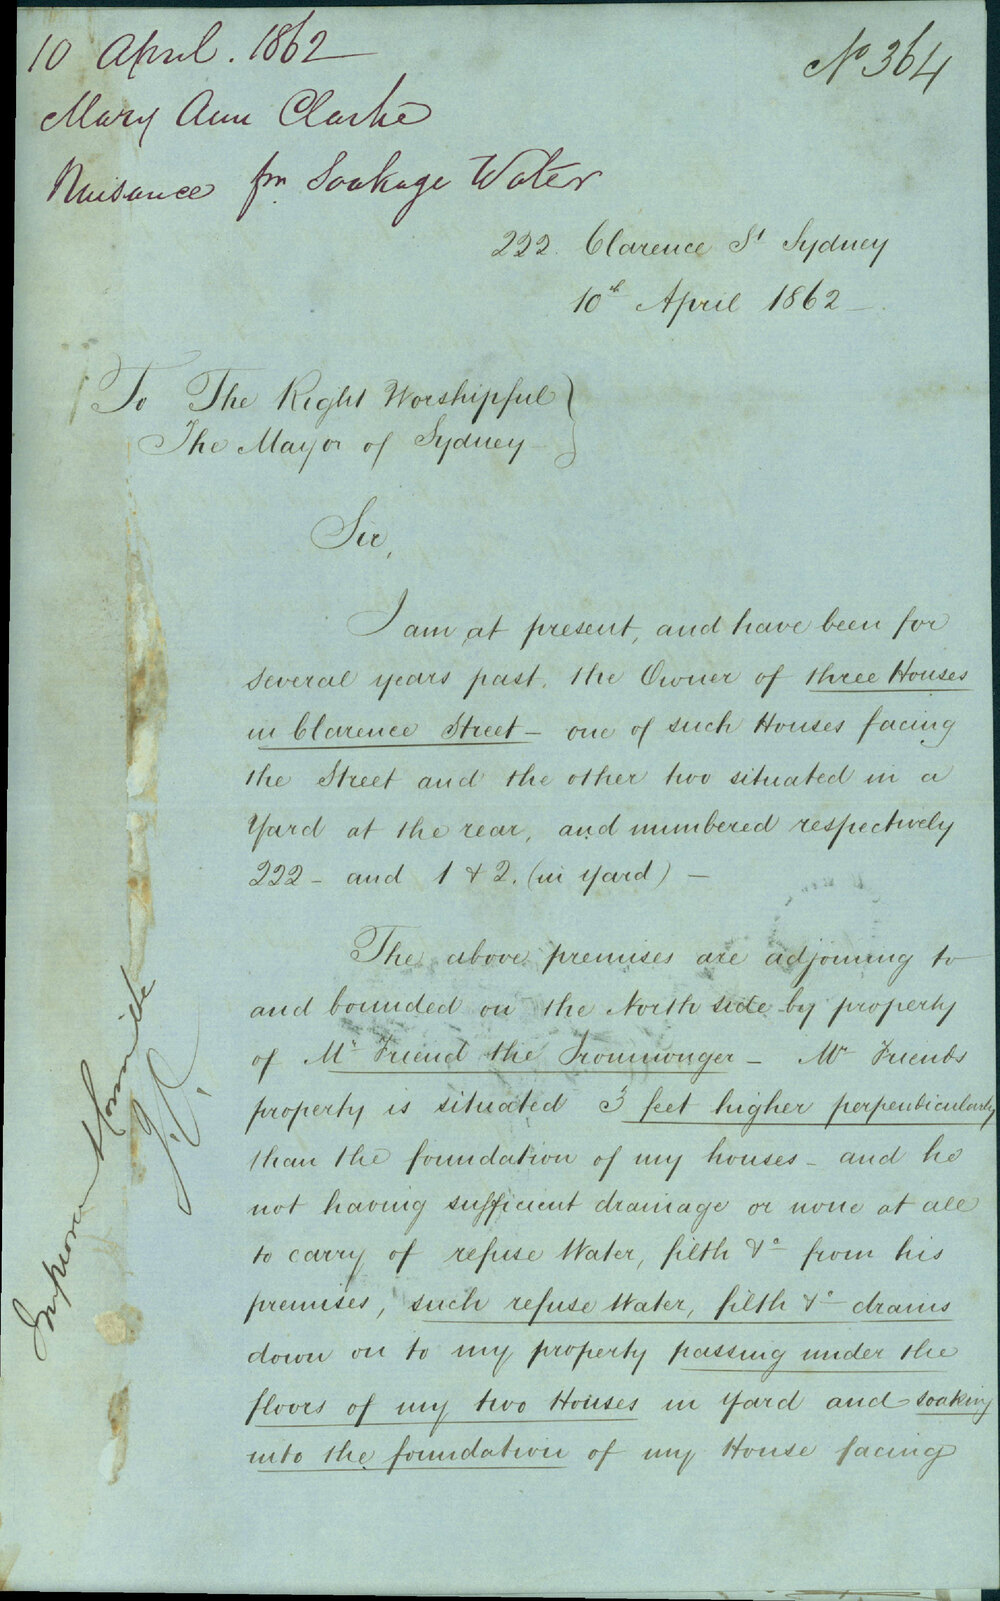 10 April. 1862
No 364
Mary Ann Clarke
Nuisance fm Soakage Water
222. Clarence St Sydney
10th April 1862 -
To The Right Worshipful
The Mayor of Sydney
Sir,
I am, at present, and have been for
several years past, the Owner of three Houses
in Clarence Street - one of such Houses facing
the Street and the other two situated in a
Yard at the rear, and numbered respectively
222 - and 1 & 2. (in yard) -
The above premises are adjoining to
and bounded on the North side by property
of Mr Friend the Ironmonger - Mr Friends
property is situated 3 feet higher perpendicularly
than the foundation of my houses - and he
not having sufficient drainage or none at all
to carry of refuse Water, filth &c from his
premises, such refuse Water, filth &c drains
down on to my property passing under the
floors of my two Houses in Yard and soaking
into the foundation of my House facing
Improvem Committe